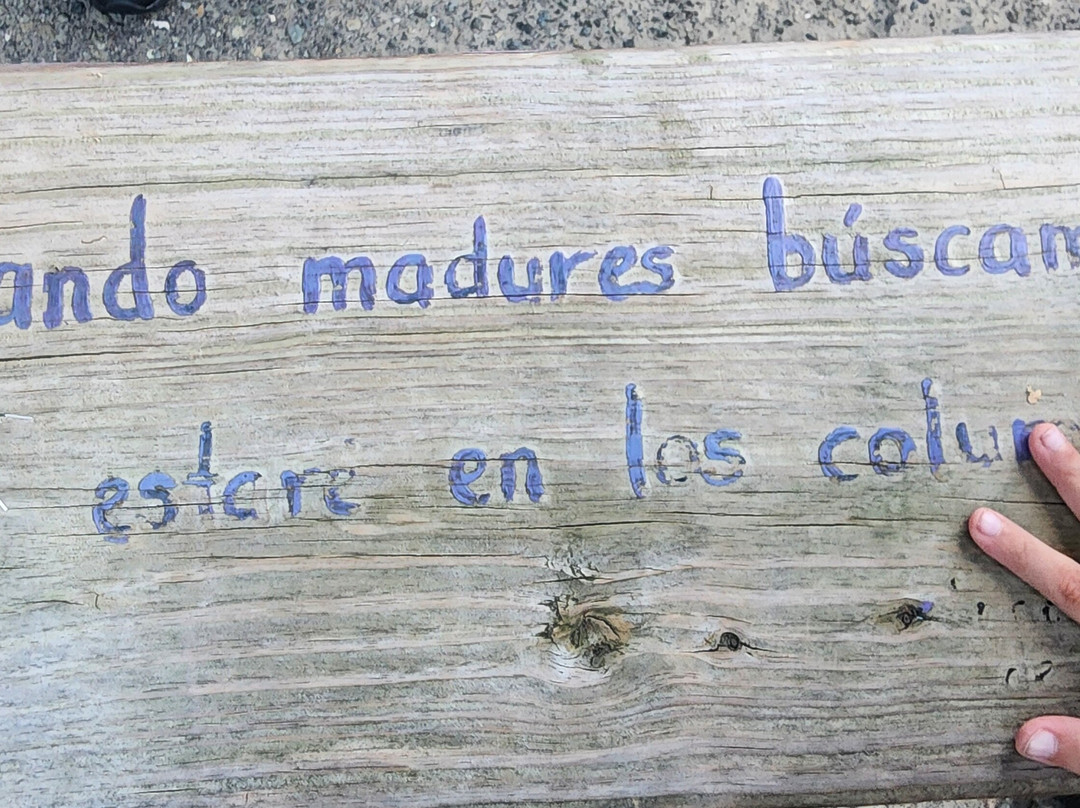 ando madures búscam
estaré en los colum